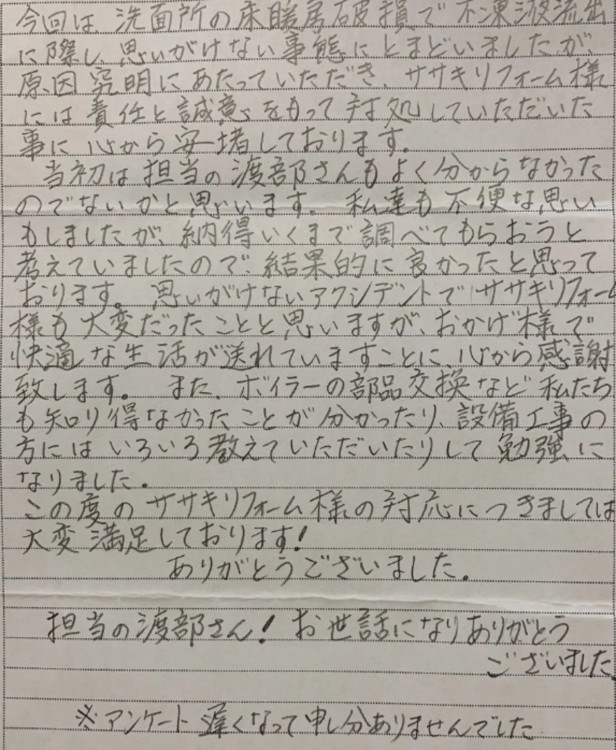 今回は洗面所の床暖房破損で不凍液流出
に際し、思いがけない事態にとまどいましたが、
原因究明にあたっていただき、ササキリフォーム様
には責任と誠意をもって対処していただいた
事に心から安堵しております。
当初は担当の渡部さんもよく分からなかった
のでないかと思います。私達も不便な思い
もしましたが、納得いくまで調べてもらおうと
考えていましたので、結果的に良かったと思って
おります。思いがけないアクシデントでササキリフォーム
様も大変だったことと思いますが、おかげ様で
快適な生活が送れていますことに、心から感謝
致します。また、ボイラーの部品交換など私たち
も知り得なかったことが分かったり、設備工事の
方にはいろいろ教えていただいたりして勉強に
なりました。
この度のササキリフォーム様の対応につきましては
大変満足しております!
ありがとうございました。
担当の渡部さん!お世話になりありがとう
ございました
※アンケート遅くなって申し分ありませんでした